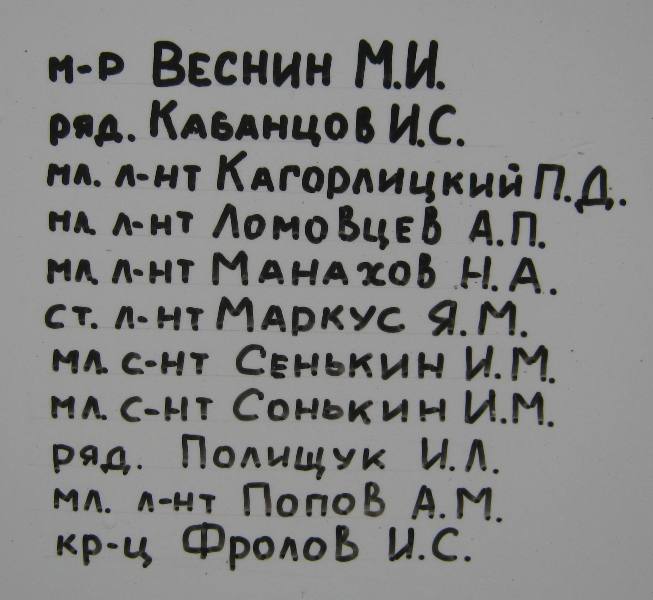 м-р Веснин М.И.
ряд. Кабанцов И.С.
мл. л-нт Кагорлицкий П.Д.
мл. л-нт Ломовцев А.П.
мл. л-нт Манахов Н.А.
ст. л-нт Маркус Я.М.
мл. с-нт Сенькин И.М.
мл. с-нт Сонькин И.М.
ряд. Полищук И.Л.
мл. л-нт Попов А.М.
кр-ц Фролов И.С.